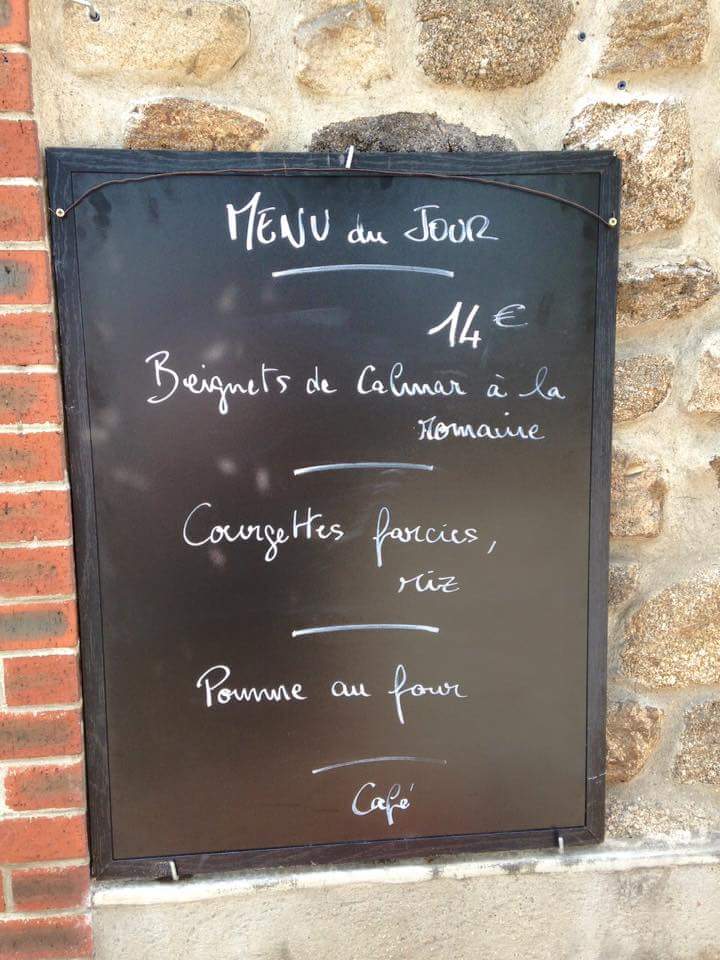 MENU du JOUR
14 €
Beignets de Calmar à la
romaine
Courgettes farcies,
riz
Pomme au four
Café